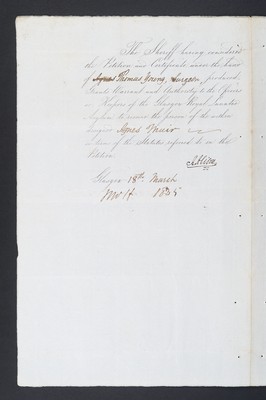 The Sheriff having considered
the Petition and Certificate under the hand
of Agnes Thomas Young, Surgeon, produced,
Grants Warrant and Authority to the Officers
or Keepers of the Glasgow Royal Lunatic
Asylum to receive the person of the within
Agnes Muir
in terms of the Statutes referred to in the
Petition.
Glasgow 18th March
1835